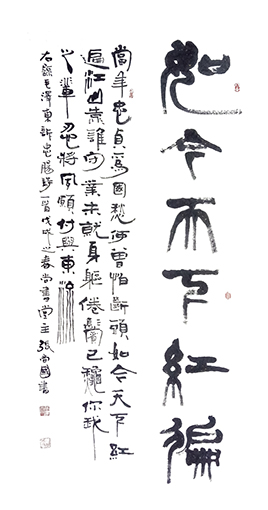 如今天下紅徧
當年忠貞為國愁何曾怕斷頭如今天下紅
遍江山靠誰守業未就身軀倦鬢已龝你我
之輩忍將夙願付與東流
右錄毛澤東訴忠腸一首戊戌之春尚書堂主張尚國書